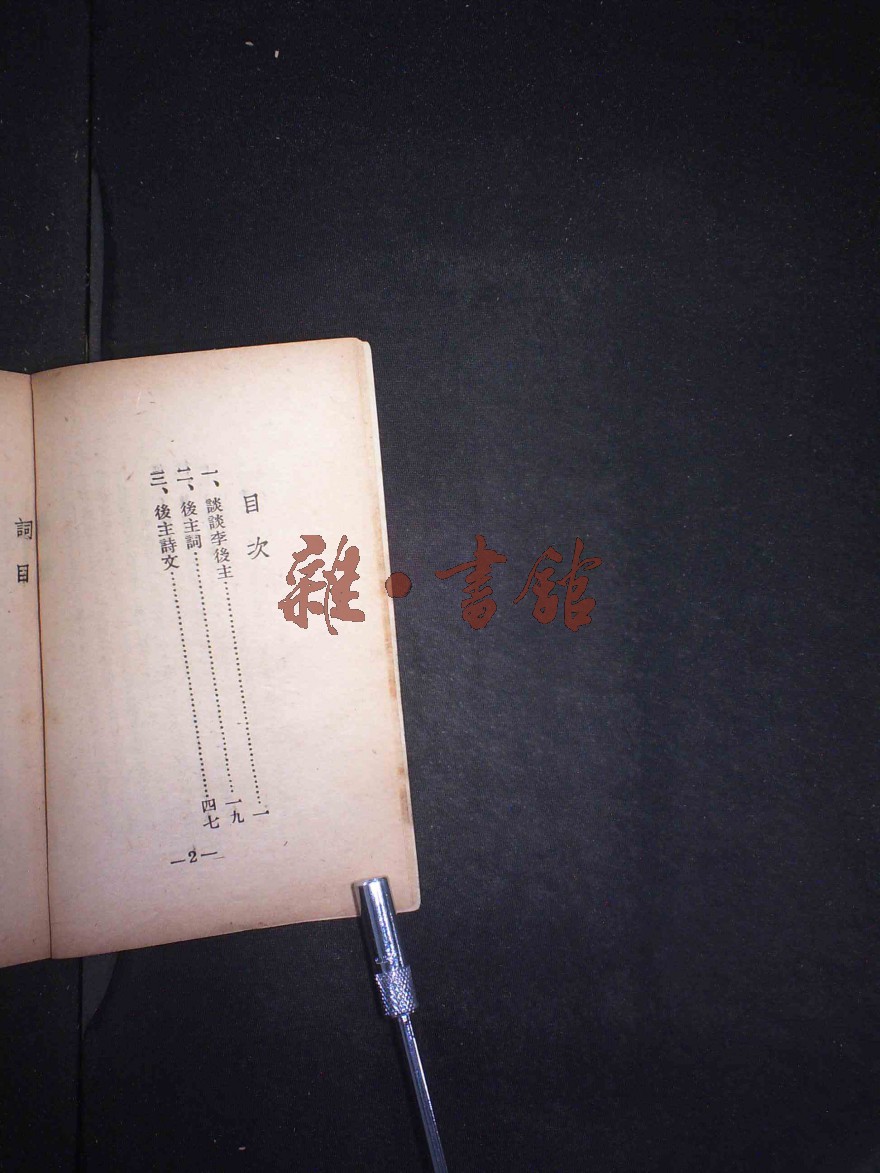 目次
一、談談李後主……一
二、後主詞……一九
三、後主詩文……四七
—2—
詞目
雜·書館